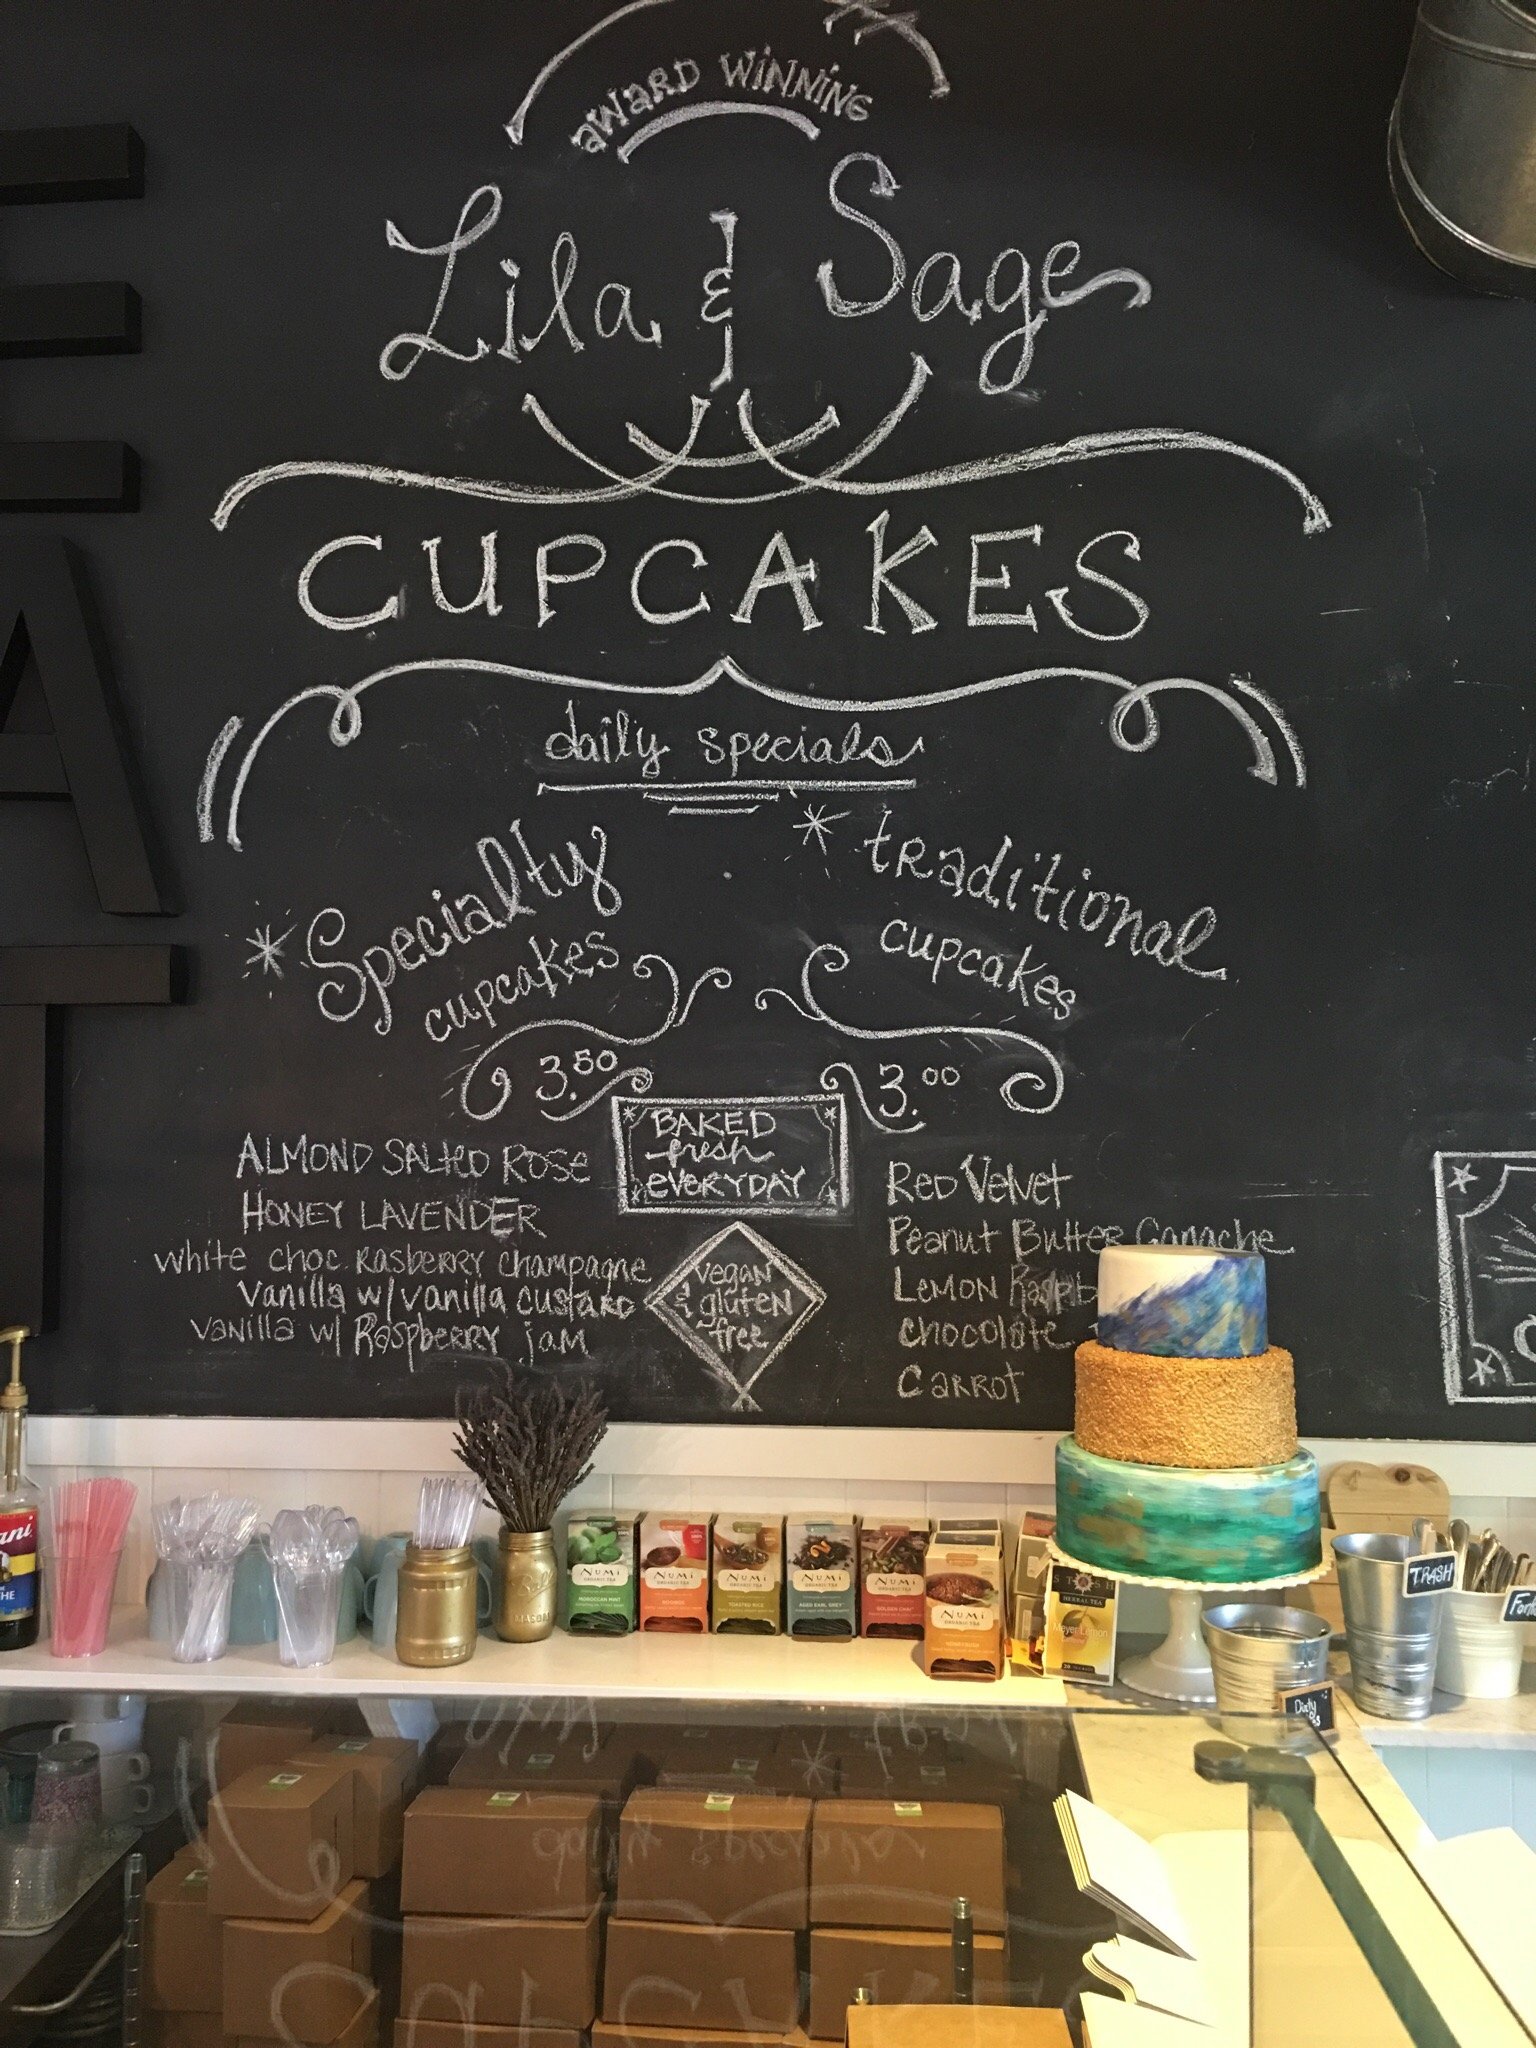 EAT
AWARD WINNING
Lila & Sage
CUPCAKES
daily specials
* Specialty
cupcakes
3.50
ALMOND SALTED ROSE
HONEY LAVENDER
white choc RASBERRY champagne
Vanilla w/ vanilla custard
vanilla w/ Raspberry jam
* traditional
cupcakes
3.00
Red Velvet
Peanut Butter Ganache
Lemon
chocolate
Carrot
BAKED
fresh
EVERYDAY
vegan
& gluten
free
ani
NUMI
ORGANIC TEA
MOROCCAN MINT
NUMI
ORGANIC TEA
ROOIBOS
NUMI
ORGANIC TEA
TOASTED RICE
NUMI
ORGANIC TEA
AGED EARL GREY
NUMI
ORGANIC TEA
GOLDEN CHAI
NUMI
ORGANIC TEA
HONEYBUSH
STASH
HERBAL TEA
Meyer Lemon
20
MASON
TRASH
Fork
Dirty